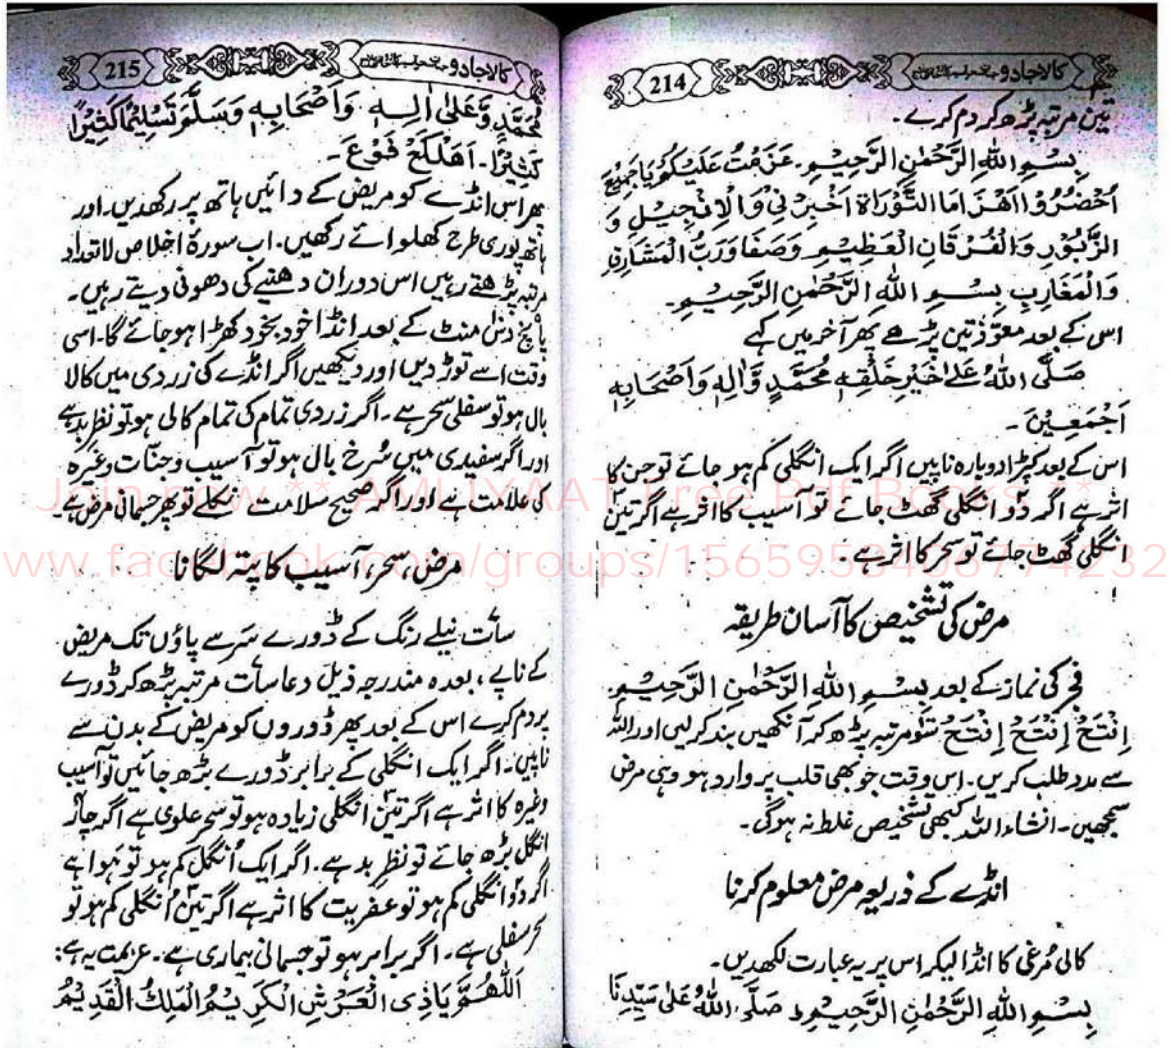 214 کالا جادو
تین مرتبہ پڑھ کر دم کرے۔
بِسْمِ اللهِ الرَّحْمٰنِ الرَّحِيْمِ۔ عَزَمْتُ عَلَيْكُمْ يَا جَمِيْعَ
اُحْضُرُوْا اَهْزَامَا التَّوْرَاةَ اَخْبِرْنِيْ وَالْاِنْجِيْلِ وَ
الزَّبُوْرِ وَالْفُرْقَانِ الْعَظِيْمِ وَصَفَا وَرَبُّ الْمَشَارِقِ
وَالْمَغَارِبِ بِسْمِ اللهِ الرَّحْمٰنِ الرَّحِيْمِ۔
اس کے بعد معوّذتین پڑھے پھر آخر میں کہے
صَلَّی اللهُ عَلٰی خَيْرِ خَلْقِهٖ مُحَمَّدٍ وَّاٰلِهٖ وَاَصْحَابِهٖ
اَجْمَعِيْنَ۔
اس کے بعد کپڑا دوبارہ ناپیں اگر ایک انگلی کم ہو جائے تو جن کا
اثر ہے اگر دو انگلی گھٹ جائے تو آسیب کا اثر ہے اگر تین
انگلی گھٹ جائے تو سحر کا اثر ہے۔
مرض کی تشخیص کا آسان طریقہ
فجر کی نماز کے بعد بِسْمِ اللهِ الرَّحْمٰنِ الرَّحِيْمِ
اِفْتَحْ اِفْتَحْ اِفْتَحْ سَو مرتبہ پڑھ کر آنکھیں بند کرلیں اور اللہ
سے مدد طلب کریں۔ اس وقت جو بھی قلب پر وارد ہو وہی مرض
سمجھیں۔ انشاء اللہ کبھی تشخیص غلط نہ ہوگی۔
انڈے کے ذریعہ مرض معلوم کرنا
کالی مُرغی کا انڈا لیکر اس پر یہ عبارت لکھدیں۔
بِسْمِ اللهِ الرَّحْمٰنِ الرَّحِيْمِ صَلَّی اللهُ عَلٰی سَيِّدِنَا
215 کالا جادو
مُحَمَّدٍ وَّعَلٰی اٰلِهٖ وَاَصْحَابِهٖ وَسَلَّمَ تَسْلِيْمًا كَثِيْرًا
كَثِيْرًا۔ اَهْلَكَعْ فَوْعَ۔
پھر اس انڈے کو مریض کے دائیں ہاتھ پر رکھدیں۔ اور
ہاتھ پوری طرح کھلوائے رکھیں۔ اب سورۃ اخلاص لاتعداد
مرتبہ پڑھتے رہیں اس دوران دھنیے کی دھونی دیتے رہیں۔
پانچ دس منٹ کے بعد انڈا خود بخود کھڑا ہو جائے گا۔ اسی
وقت اسے توڑ دیں اور دیکھیں اگر انڈے کی زردی میں کالا
بال ہو تو سفلی سحر ہے۔ اگر زردی تمام کی تمام کالی ہو تو نظر بد ہے
اور اگر سفیدی میں سُرخ بال ہو تو آسیب و جنّات وغیرہ
کی علامت ہے اور اگر صحیح سلامت نکلے تو پھر جسمانی مرض ہے۔
مرض، سحر، آسیب کا پتہ لگانا
سات نیلے رنگ کے ڈورے سَر سے پاؤں تک مریض
کے ناپے، بعدہ مندرجہ ذیل دعا سات مرتبہ پڑھ کر ڈورے
پر دم کرے اس کے بعد پھر ڈوروں کو مریض کے بدن سے
ناپیں۔ اگر ایک انگلی کے برابر ڈورے بڑھ جائیں تو آسیب
وغیرہ کا اثر ہے اگر تین انگلی زیادہ ہو تو سحر علوی ہے اگر چار
انگل بڑھ جائے تو نظر بد ہے۔ اگر ایک اُنگل کم ہو تو ہَوا ہے
اگر دو انگلی کم ہو تو عفریت کا اثر ہے اگر تین اُنگلی کم ہو تو
سحر سفلی ہے۔ اگر برابر ہو تو جسمانی بیماری ہے۔ عزیمت یہ ہے:
اَللّٰهُمَّ يَاذِی الْعَرْشِ الْكَرِيْمُ الْمَلِكُ الْقَدِيْمُ
Join now ** AMLIYAAT Free Pdf Books **
ww.facebook.com/groups/1565953406774232